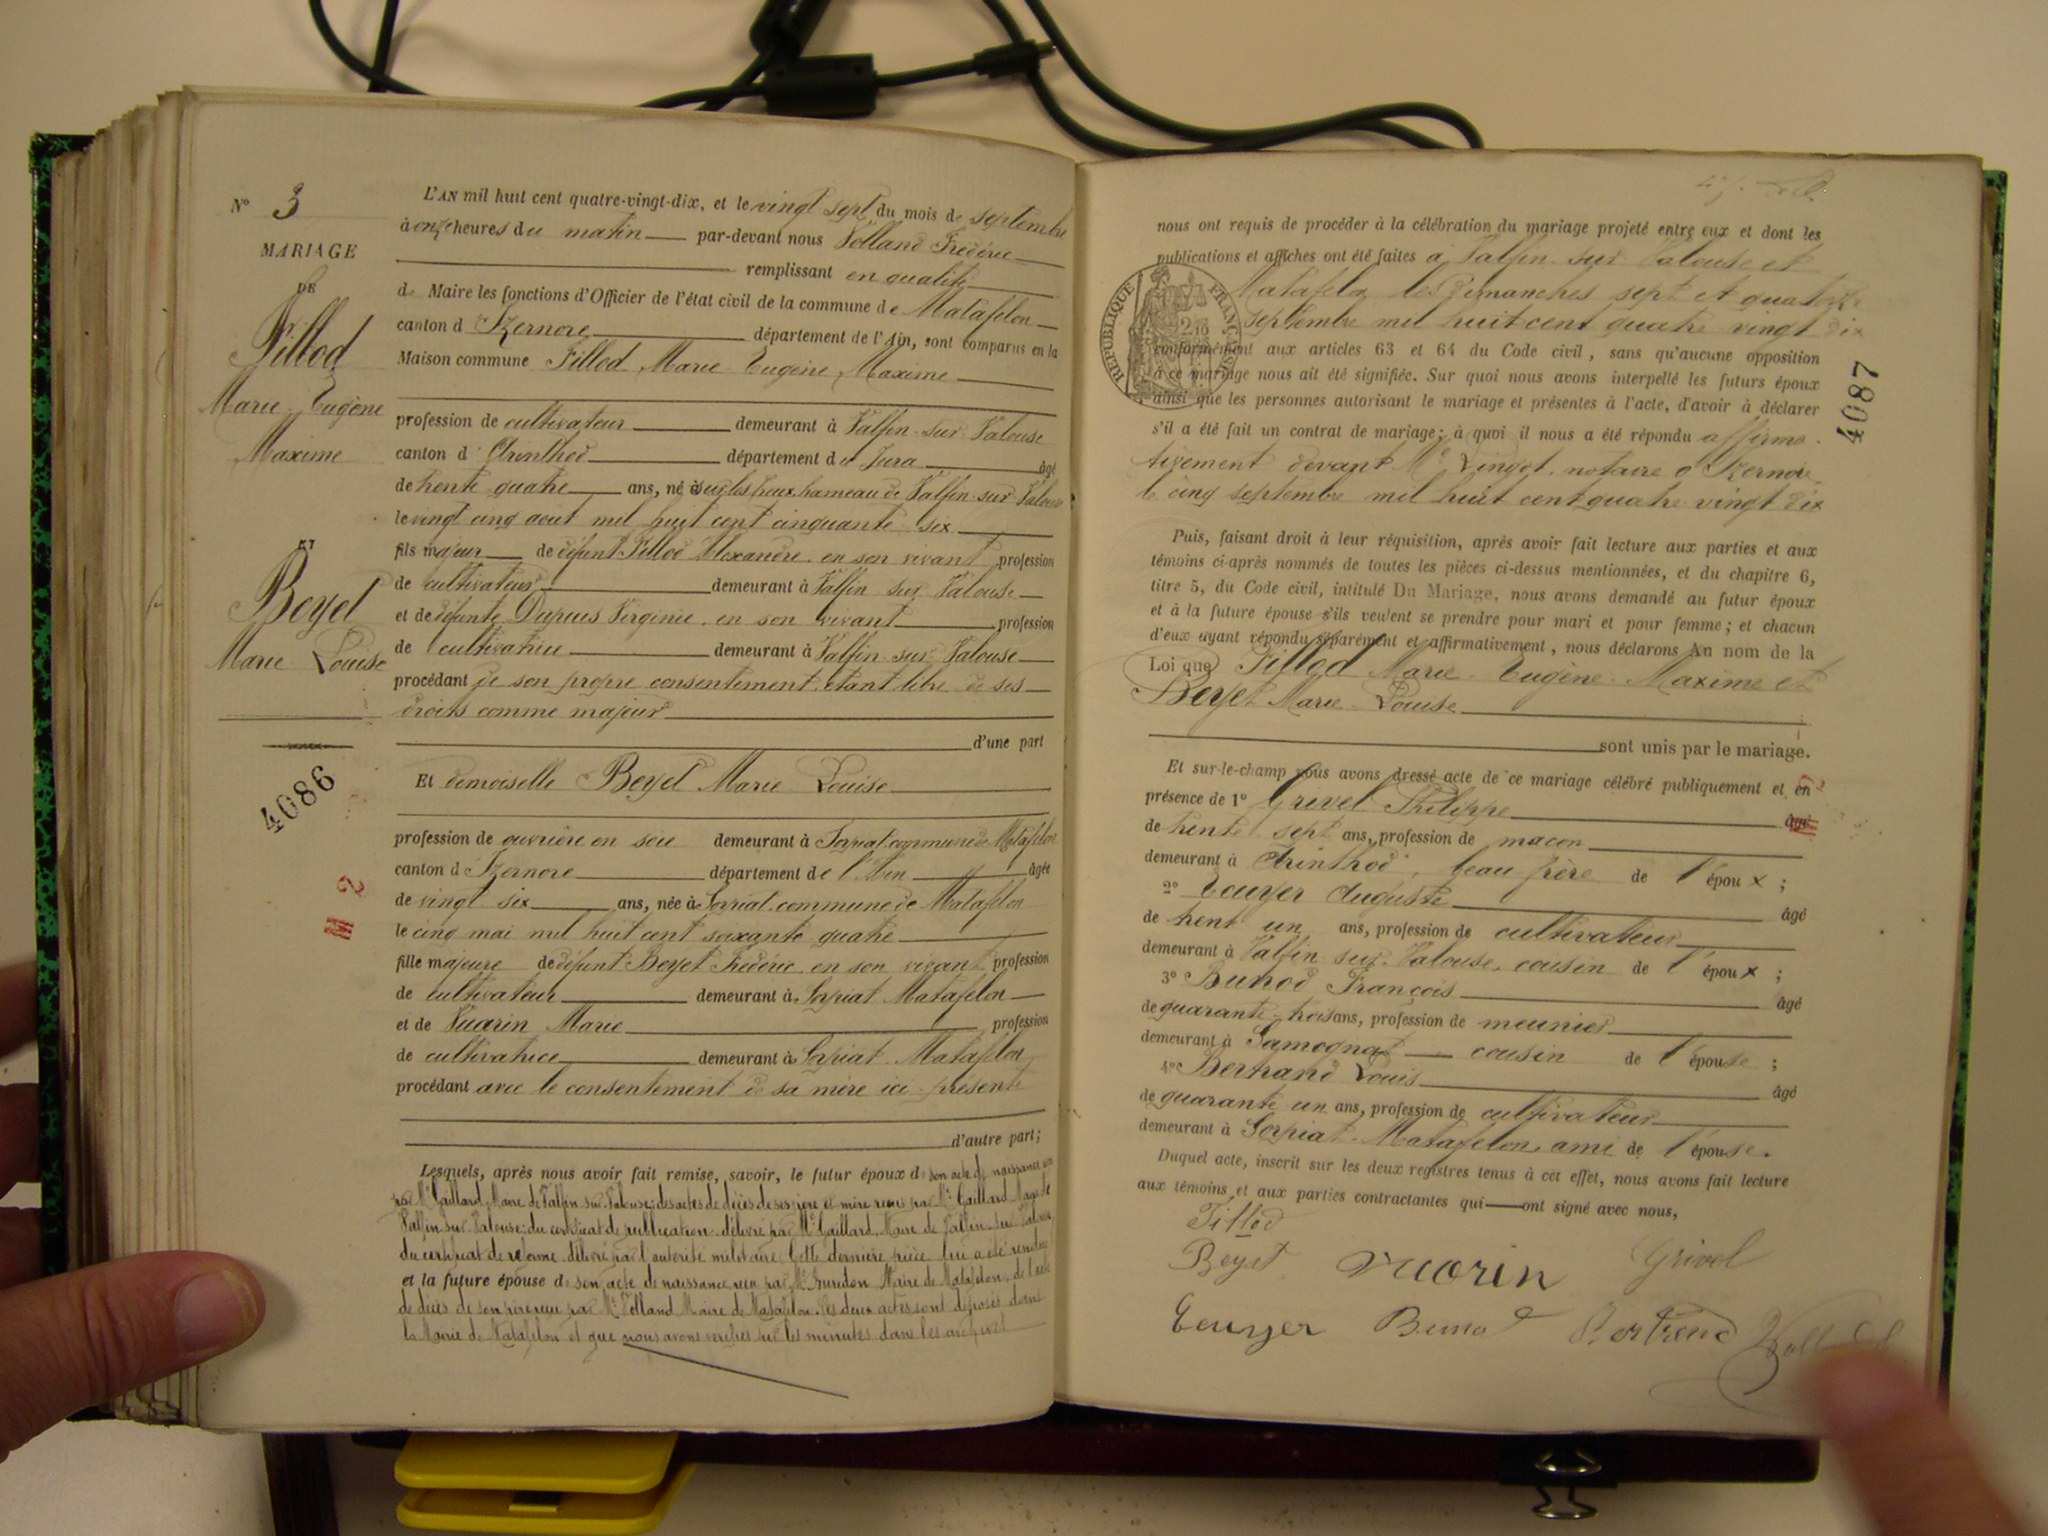 N° 3
MARIAGE
DE
Fillod
Marie Eugène
Maxime
ET
Beyet
Marie Louise
4086
L'AN mil huit cent quatre-vingt-dix, et le vingt sept du mois de septembre
à onze heures du matin par-devant nous Volland Frédéric
remplissant en qualité
de Maire les fonctions d'Officier de l'état civil de la commune de Matafelon
canton d'Izernore département de l'Ain, sont comparus en la
Maison commune Fillod Marie Eugène Maxime
profession de cultivateur demeurant à Valfin sur Valouse
canton d'Arinthod département du Jura âgé
de trente quatre ans, né à hameau de Valfin sur Valouse
le vingt cinq aout mil huit cent cinquante six
fils majeur de défunt Fillod Alexandre en son vivant profession
de cultivateur demeurant à Valfin sur Valouse
et de défunte Dupuis Virginie en son vivant profession
de cultivatrice demeurant à Valfin sur Valouse
procédant de son propre consentement étant libre de ses
droits comme majeur
d'une part
Et demoiselle Beyet Marie Louise
profession de ouvrière en soie demeurant à Sorpiat commune de Matafelon
canton d'Izernore département de l'Ain âgée
de vingt six ans, née à Sorpiat commune de Matafelon
le cinq mai mil huit cent soixante quatre
fille majeure de défunt Beyet Frédéric en son vivant profession
de cultivateur demeurant à Sorpiat Matafelon
et de Vuarin Marie profession
de cultivatrice demeurant à Sorpiat Matafelon
procédant avec le consentement de sa mère ici présente
d'autre part;
Lesquels, après nous avoir fait remise, savoir, le futur époux de son acte de naissance
par Mr Gaillard Maire de Valfin sur Valouse; des actes de décès de ses père et mère reçus par Mr Gaillard Maire de
Valfin sur Valouse; du certificat de publication délivré par Mr Gaillard Maire de Valfin sur Valouse
du certificat de réforme délivré par l'autorité militaire Cette dernière pièce lui a été rendue
et la future épouse de son acte de naissance reçu par Mr Maire de Matafelon, de l'acte
de décès de son père reçu par Mr Volland Maire de Matafelon. Ces deux actes sont déposés dans
la Mairie de Matafelon et que nous avons vérifiés sur les minutes dans les archives
nous ont requis de procéder à la célébration du mariage projeté entre eux et dont les
publications et affiches ont été faites à Valfin sur Valouse et
Matafelon les Dimanches sept et quatorze
septembre mil huit cent quatre vingt dix
conformément aux articles 63 et 64 du Code civil, sans qu'aucune opposition
à ce mariage nous ait été signifiée. Sur quoi nous avons interpellé les futurs époux
ainsi que les personnes autorisant le mariage et présentes à l'acte, d'avoir à déclarer
s'il a été fait un contrat de mariage; à quoi il nous a été répondu affirma-
tivement devant Me Lingot notaire à Izernore
le cinq septembre mil huit cent quatre vingt dix
RÉPUBLIQUE FRANÇAISE
4087
Puis, faisant droit à leur réquisition, après avoir fait lecture aux parties et aux
témoins ci-après nommés de toutes les pièces ci-dessus mentionnées, et du chapitre 6,
titre 5, du Code civil, intitulé Du Mariage, nous avons demandé au futur époux
et à la future épouse s'ils veulent se prendre pour mari et pour femme; et chacun
d'eux ayant répondu séparément et affirmativement, nous déclarons Au nom de la
Loi que Fillod Marie Eugène Maxime et
Beyet Marie Louise
sont unis par le mariage.
Et sur-le-champ nous avons dressé acte de ce mariage célébré publiquement et en
présence de 1° Grivel Philippe âgé
de trente sept ans, profession de macon
demeurant à Arinthod, beau frère de l'époux;
2° Touyer Auguste âgé
de trent un ans, profession de cultivateur
demeurant à Valfin sur Valouse, cousin de l'époux;
3° Bunod François âgé
de quarante-trois ans, profession de meunier
demeurant à Samognat cousin de l'épouse;
4° Bertrand Louis âgé
de quarante un ans, profession de cultivateur
demeurant à Sorpiat Matafelon, ami de l'épouse.
Duquel acte, inscrit sur les deux registres tenus à cet effet, nous avons fait lecture
aux témoins et aux parties contractantes qui ont signé avec nous,
Fillod
Beyet Vuarin Grivel
Touyer Bunod Bertrend